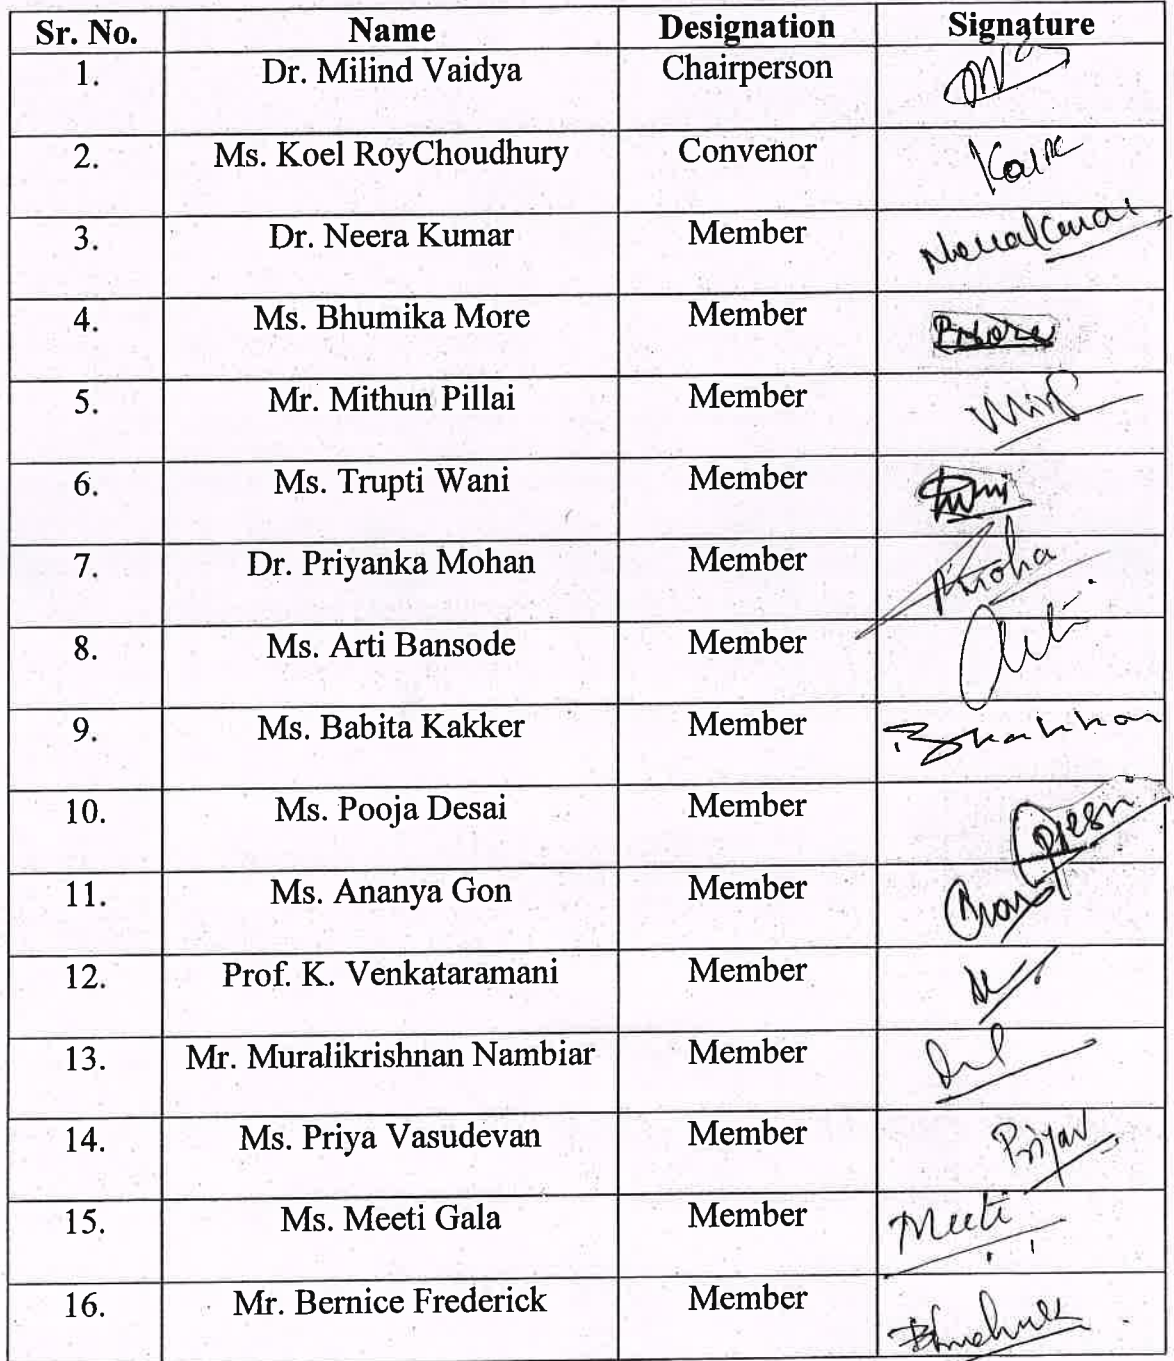 Sr. No. Name Designation Signature
1. Dr. Milind Vaidya Chairperson
2. Ms. Koel RoyChoudhury Convenor
3. Dr. Neera Kumar Member
4. Ms. Bhumika More Member
5. Mr. Mithun Pillai Member
6. Ms. Trupti Wani Member
7. Dr. Priyanka Mohan Member
8. Ms. Arti Bansode Member
9. Ms. Babita Kakker Member
10. Ms. Pooja Desai Member
11. Ms. Ananya Gon Member
12. Prof. K. Venkataramani Member
13. Mr. Muralikrishnan Nambiar Member
14. Ms. Priya Vasudevan Member Priyav
15. Ms. Meeti Gala Member Meeti
16. Mr. Bernice Frederick Member